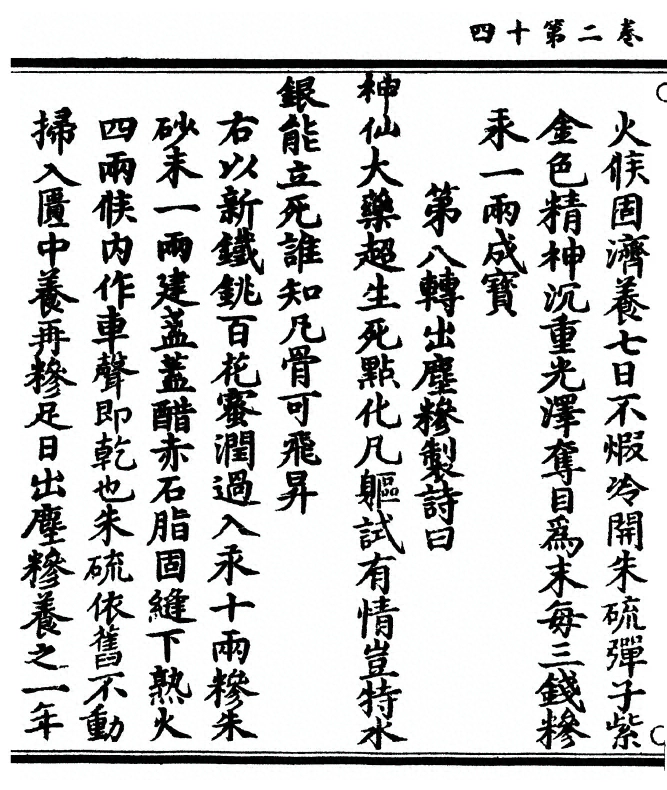 卷二第十四
火候固濟養七日不煆冷開朱硫彈子紫
金色精神沉重光澤奪目爲末每三錢糝
汞一兩成寳
第八轉出塵糝製詩曰
神仙大藥超生死點化凡軀試有情豈特水
銀能立死誰知凡骨可飛昇
右以新鐵銚百花蜜潤過入汞十兩糝朱
砂末一兩建盞蓋醋赤石脂固縫下熟火
四兩候内作車聲即乾也朱硫依舊不動
掃入匱中養再糝足日出塵糝養之一年